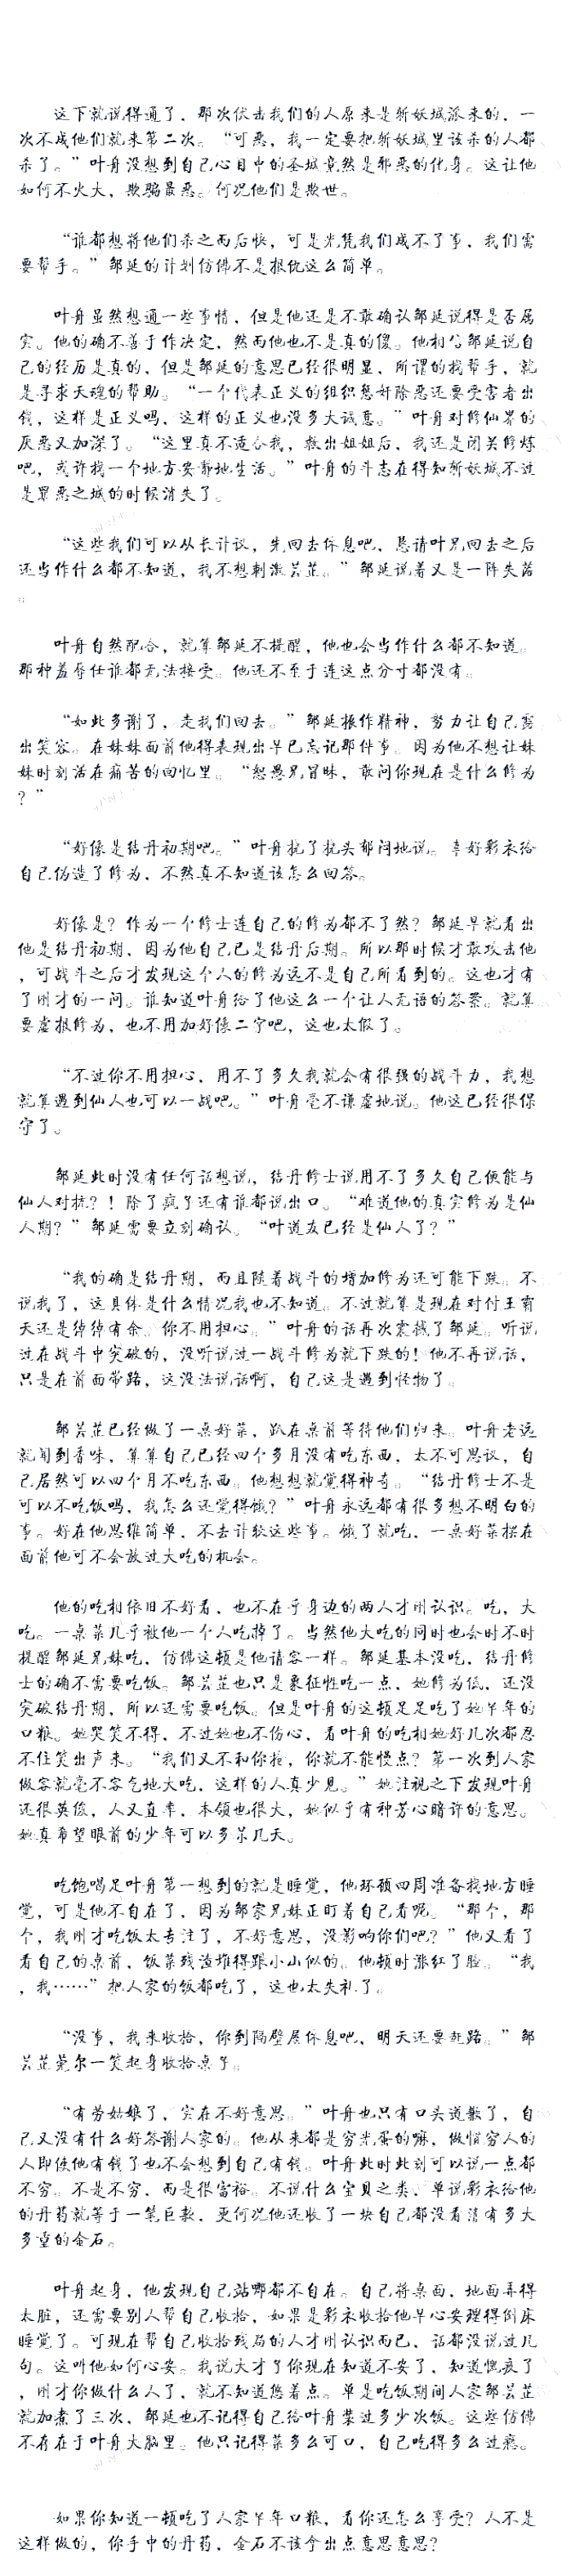 这下就说得通了，那次伏击我们的人原来是斩妖城派来的，一
次不成他们就来第二次。“可恶，我一定要把斩妖城里该杀的人都
杀了。”叶舟没想到自己心目中的圣城竟然是邪恶的化身。这让他
如何不火大，欺骗最恶。何况他们是欺世。
“谁都想将他们杀之而后快，可是光凭我们成不了事，我们需
要帮手。”邹延的计划仿佛不是报仇这么简单。
叶舟虽然想通一些事情，但是他还是不敢确认邹延说得是否属
实。他的确不善于作决定，然而他也不是真的傻。他相信邹延说自
己的经历是真的，但是邹延的意思已经很明显，所谓的找帮手，就
是寻求天魂的帮助。“一个代表正义的组织惩奸除恶还要受害者出
钱，这样是正义吗，这样的正义也没多大诚意。”叶舟对修仙界的
厌恶又加深了。“这里真不适合我，救出姐姐后，我还是闭关修炼
吧，或许找一个地方安静地生活。”叶舟的斗志在得知斩妖城不过
是罪恶之城的时候消失了。
“这些我们可以从长计议，先回去休息吧，恳请叶兄回去之后
还当作什么都不知道，我不想刺激芸芷。”邹延说着又是一阵失落
。
叶舟自然配合，就算邹延不提醒，他也会当作什么都不知道。
那种羞辱任谁都无法接受。他还不至于连这点分寸都没有。
“如此多谢了，走我们回去。”邹延振作精神，努力让自己露
出笑容。在妹妹面前他得表现出早已忘记那件事。因为他不想让妹
妹时刻活在痛苦的回忆里。“恕愚兄冒昧，敢问你现在是什么修为
？”
“好像是结丹初期吧。”叶舟挠了挠头郁闷地说。幸好彩衣给
自己伪造了修为，不然真不知道该怎么回答。
好像是？作为一个修士连自己的修为都不了然？邹延早就看出
他是结丹初期，因为他自己已是结丹后期。所以那时候才敢攻击他
，可战斗之后才发现这个人的修为远不是自己所看到的。这也才有
了刚才的一问。谁知道叶舟给了他这么一个让人无语的答案。就算
要虚报修为，也不用加好像二字吧，这也太假了。
“不过你不用担心，用不了多久我就会有很强的战斗力，我想
就算遇到仙人也可以一战吧。”叶舟毫不谦虚地说。他这已经很保
守了。
邹延此时没有任何话想说，结丹修士说用不了多久自己便能与
仙人对抗？！除了疯子还有谁都说出口。“难道他的真实修为是仙
人期？”邹延需要立刻确认。“叶道友已经是仙人了？”
“我的确是结丹期，而且随着战斗的增加修为还可能下跌。不
说我了，这具体是什么情况我也不知道。不过就算是现在对付王霸
天还是绰绰有余。你不用担心。”叶舟的话再次震撼了邹延。听说
过在战斗中突破的，没听说过一战斗修为就下跌的！他不再说话，
只是在前面带路，这没法说话啊，自己这是遇到怪物了。
邹芸芷已经做了一桌好菜，趴在桌前等待他们归来。叶舟老远
就闻到香味，算算自己已经四个多月没有吃东西，太不可思议，自
己居然可以四个月不吃东西。他想想就觉得神奇。“结丹修士不是
可以不吃饭吗，我怎么还觉得饿？”叶舟永远都有很多想不明白的
事。好在他思维简单，不去计较这些事。饿了就吃，一桌好菜摆在
面前他可不会放过大吃的机会。
他的吃相依旧不好看，也不在乎身边的两人才刚认识。吃，大
吃。一桌菜几乎被他一个人吃掉了。当然他大吃的同时也会时不时
提醒邹延兄妹吃，仿佛这顿是他请客一样。邹延基本没吃，结丹修
士的确不需要吃饭。邹芸芷也只是象征性吃一点，她修为低，还没
突破结丹期，所以还需要吃饭。但是叶舟的这顿足足吃了她半年的
口粮。她哭笑不得，不过她也不伤心，看叶舟的吃相她好几次都忍
不住笑出声来。“我们又不和你抢，你就不能慢点？第一次到人家
做客就毫不客气地大吃，这样的人真少见。”她注视之下发现叶舟
还很英俊，人又直率，本领也很大，她似乎有种芳心暗许的意思。
她真希望眼前的少年可以多呆几天。
吃饱喝足叶舟第一想到的就是睡觉，他环顾四周准备找地方睡
觉，可是他不自在了，因为邹家兄妹正盯着自己看呢。“那个，那
个，我刚才吃饭太专注了，不好意思，没影响你们吧？”他又看了
看自己的桌前，饭菜残渣堆得跟小山似的。他顿时涨红了脸。“我
，我……”把人家的饭都吃了，这也太失礼了。
“没事，我来收拾，你到隔壁屋休息吧，明天还要赶路。”邹
芸芷莞尔一笑起身收拾桌子。
“有劳姑娘了，实在不好意思。”叶舟也只有口头道歉了，自
己又没有什么好答谢人家的。他从来都是穷光蛋的嘛，做惯穷人的
人即使他有钱了也不会想到自己有钱。叶舟此时此刻可以说一点都
不穷。不是不穷，而是很富裕。不说什么宝贝之类，单说彩衣给他
的丹药就等于一笔巨款，更何况他还收了一块自己都没看清有多大
多重的金石。
叶舟起身，他发现自己站哪都不自在。自己将桌面，地面弄得
太脏，还需要别人帮自己收拾，如果是彩衣收拾他早心安理得倒床
睡觉了。可现在帮自己收拾残局的人才刚认识而已，话都没说过几
句。这叫他如何心安。我说大才子你现在知道不安了，知道愧疚了
，刚才你做什么人了，就不知道悠着点。单是吃饭期间人家邹芸芷
就加煮了三次，邹延也不记得自己给叶舟装过多少次饭。这些仿佛
不存在于叶舟大脑里。他只记得菜多么可口，自己吃得多么过瘾。
如果你知道一顿吃了人家半年口粮，看你还怎么享受？人不是
这样做的，你手中的丹药，金石不该拿出点意思意思？